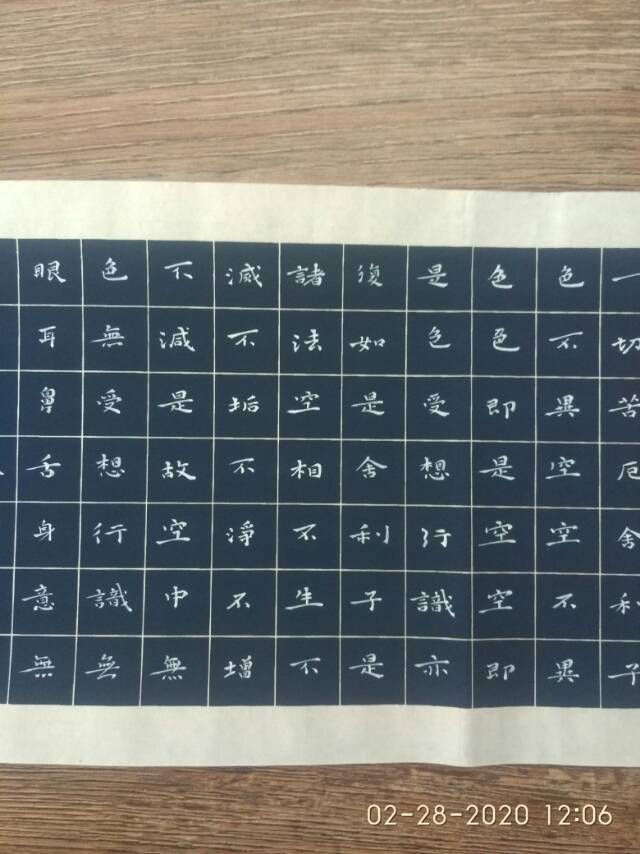 一切苦厄舍利子
色不異空空不異
色色即是空空即
是色受想行識亦
復如是舍利子是
諸法空相不生不
滅不垢不淨不增
不減是故空中無
色無受想行識無
眼耳鼻舌身意無
02-28-2020 12:06